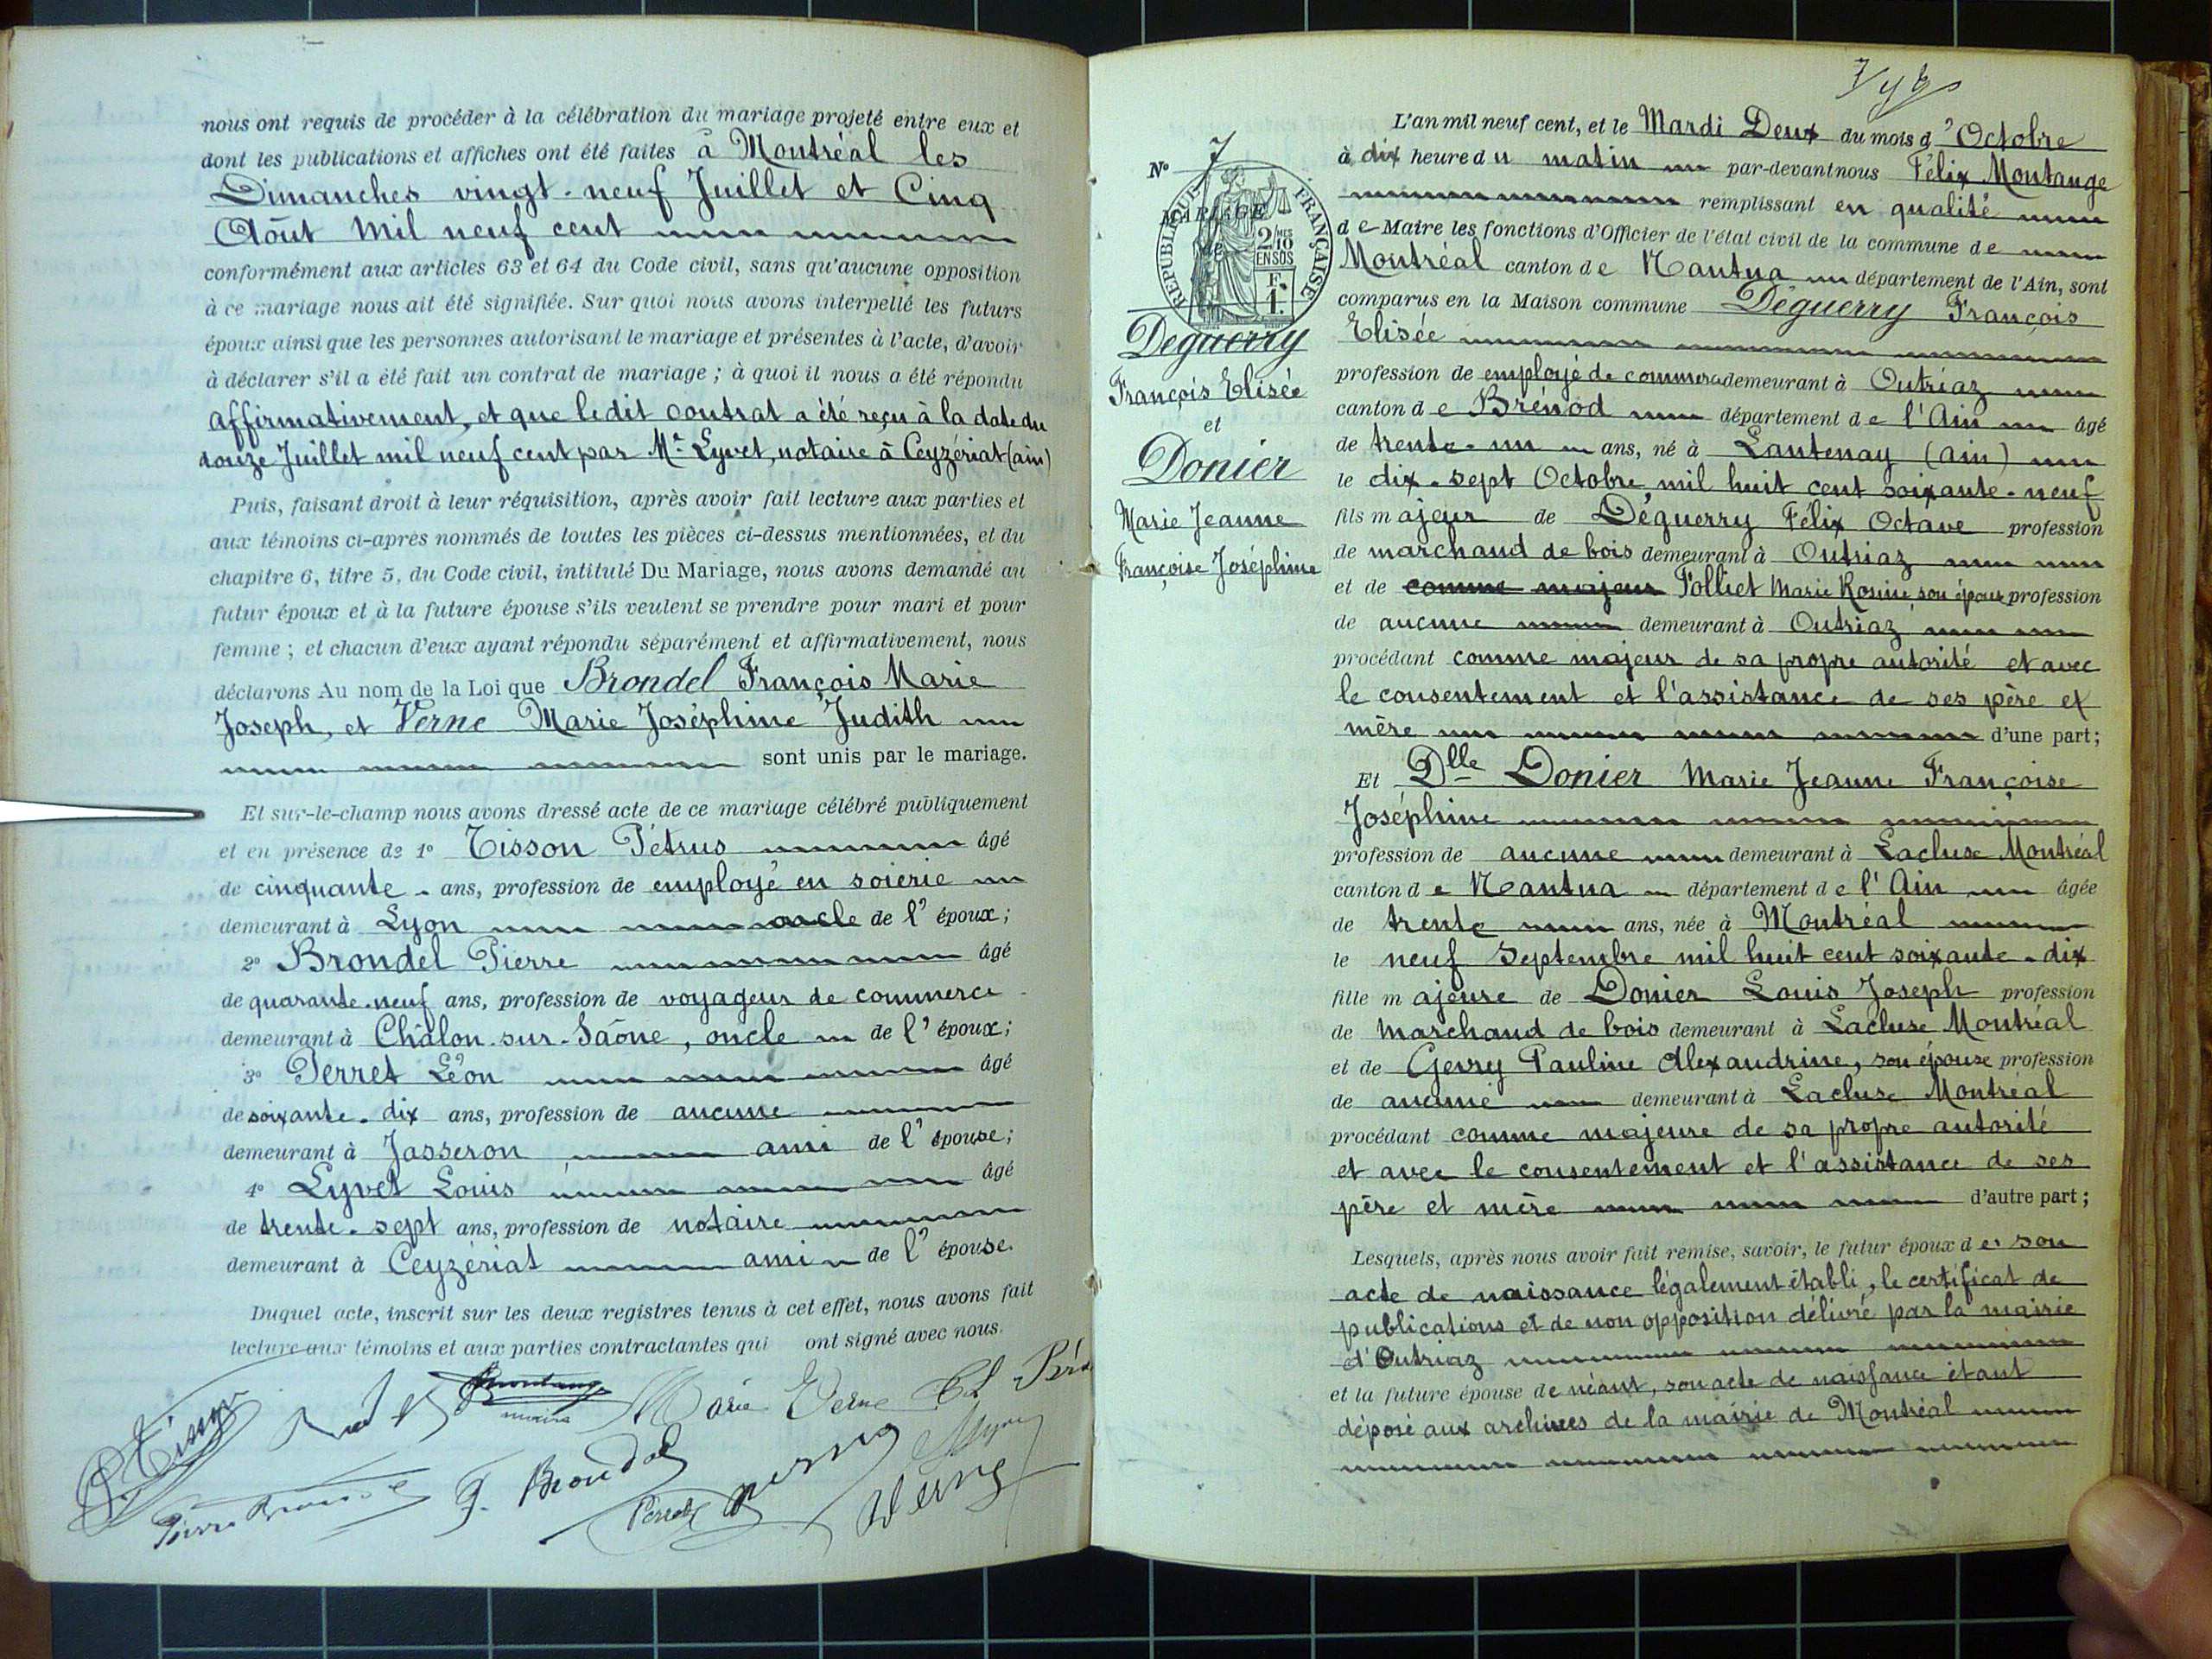 nous ont requis de procéder à la célébration du mariage projeté entre eux et
dont les publications et affiches ont été faites à Montréal les
Dimanches vingt-neuf Juillet et Cinq
Août Mil neuf cent
conformément aux articles 63 et 64 du Code civil, sans qu'aucune opposition
à ce mariage nous ait été signifiée. Sur quoi nous avons interpellé les futurs
époux ainsi que les personnes autorisant le mariage et présentes à l'acte, d'avoir
à déclarer s'il a été fait un contrat de mariage ; à quoi il nous a été répondu
affirmativement, et que ledit contrat a été reçu à la date du
Juillet mil neuf cent par Me Lyvet, notaire à Ceyzériat (ain)
Puis, faisant droit à leur réquisition, après avoir fait lecture aux parties et
aux témoins ci-après nommés de toutes les pièces ci-dessus mentionnées, et du
chapitre 6, titre 5, du Code civil, intitulé Du Mariage, nous avons demandé au
futur époux et à la future épouse s'ils veulent se prendre pour mari et pour
femme ; et chacun d'eux ayant répondu séparément et affirmativement, nous
déclarons Au nom de la Loi que Brondel François Marie
Joseph, et Verne Marie Joséphine Judith
sont unis par le mariage.
Et sur-le-champ nous avons dressé acte de ce mariage célébré publiquement
et en présence de 1° Tisson Pétrus âgé
de cinquante - ans, profession de employé en soierie
demeurant à Lyon oncle de l'époux ;
2° Brondel Pierre âgé
de quarante-neuf ans, profession de voyageur de commerce
demeurant à Châlon-sur-Saône, oncle de l'époux ;
3° Perret Léon âgé
de soixante-dix ans, profession de aucune
demeurant à Jasseron ami de l'épouse ;
4° Lyvet Louis âgé
de trente-sept ans, profession de notaire
demeurant à Ceyzériat ami de l'épouse.
Duquel acte, inscrit sur les deux registres tenus à cet effet, nous avons fait
lecture aux témoins et aux parties contractantes qui ont signé avec nous.
Montange
maire
Marie Verne
P. Tisson
Pierre Brondel
F. Brondel
Perret
Verne
N° 7
MARIAGE
de
REPUBLIQUE FRANÇAISE
2/10 MES
EN SUS
F.
1.
Deguerry
François Elisée
et
Donier
Marie Jeanne
Françoise Joséphine
L'an mil neuf cent, et le Mardi Deux du mois d'Octobre
à dix heure du matin par-devant nous Félix Montange
remplissant en qualité
de Maire les fonctions d'Officier de l'état civil de la commune de
Montréal canton de Nantua département de l'Ain, sont
comparus en la Maison commune Déguerry François
Elisée
profession de employé de commerce demeurant à Outriaz
canton de Brénod département de l'Ain âgé
de trente-un ans, né à Lantenay (ain)
le dix-sept Octobre mil huit cent soixante-neuf
fils majeur de Déguerry Félix Octave profession
de marchand de bois demeurant à Outriaz
et de comme majeur Polliet Marie Rosine, son épouse profession
de aucune demeurant à Outriaz
procédant comme majeur de sa propre autorité et avec
le consentement et l'assistance de ses père et
mère d'une part ;
Et Dlle Donier Marie Jeanne Françoise
Joséphine
profession de aucune demeurant à Lacluse Montréal
canton de Nantua département de l'Ain âgée
de trente ans, née à Montréal
le neuf Septembre mil huit cent soixante-dix
fille majeure de Donier Louis Joseph profession
de marchand de bois demeurant à Lacluse Montréal
et de Gerry Pauline Alexandrine, son épouse profession
de aucune demeurant à Lacluse Montréal
procédant comme majeure de sa propre autorité
et avec le consentement et l'assistance de ses
père et mère d'autre part ;
Lesquels, après nous avoir fait remise, savoir, le futur époux de son
acte de naissance légalement établi, le certificat de
publications et de non opposition délivré par la mairie
d'Outriaz
et la future épouse de néant, son acte de naissance étant
déposé aux archives de la mairie de Montréal